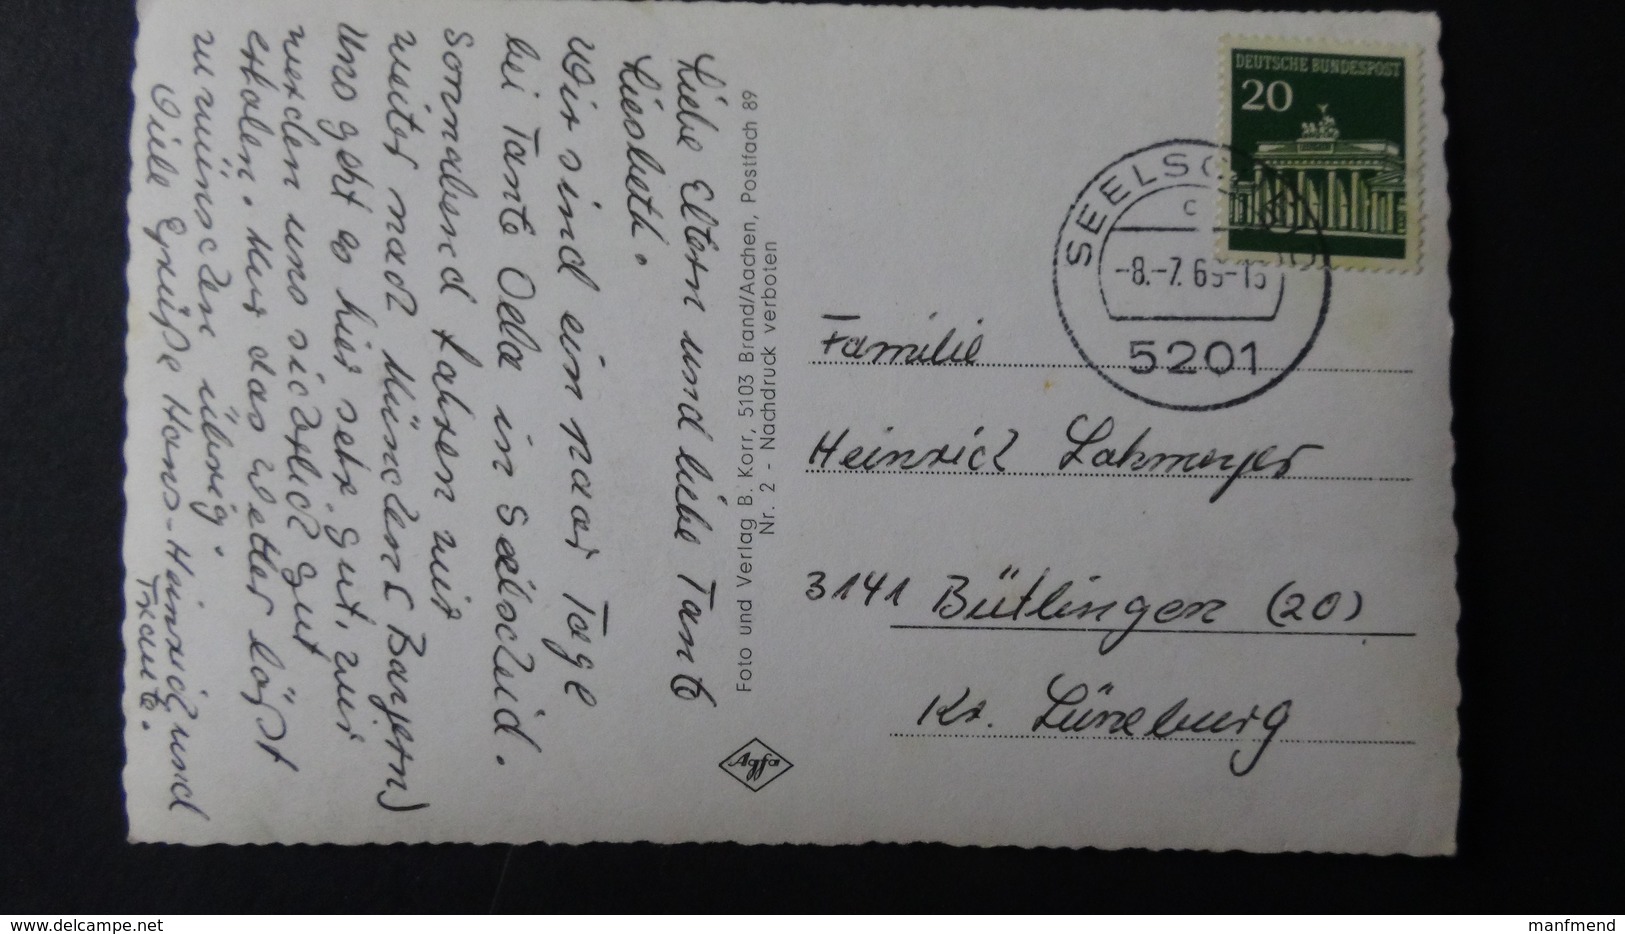 Liebe Eltern und liebe Tante
Liesbeth.
Wir sind ein paar Tage
bei Tante Oela in Seelscheid.
Sonnabend fahren wir
weiter nach München (Bayern)
Uns geht es hier sehr gut, wir
werden uns sicherlich gut
erholen. Nur das Wetter läßt
zu wünschen übrig.
Viele Grüße Hans-Heinrich und
Traute.
Foto und Verlag B. Korr, 5103 Brand/Aachen, Postfach 89
Nr. 2 - Nachdruck verboten
Agfa
DEUTSCHE BUNDESPOST
20
SEELSC
c
-8.-7.69-15
5201
Familie
Heinrich Lahmeyer
3141 Bütlingen (20)
Kr. Lüneburg
delcampe.net
manfmend